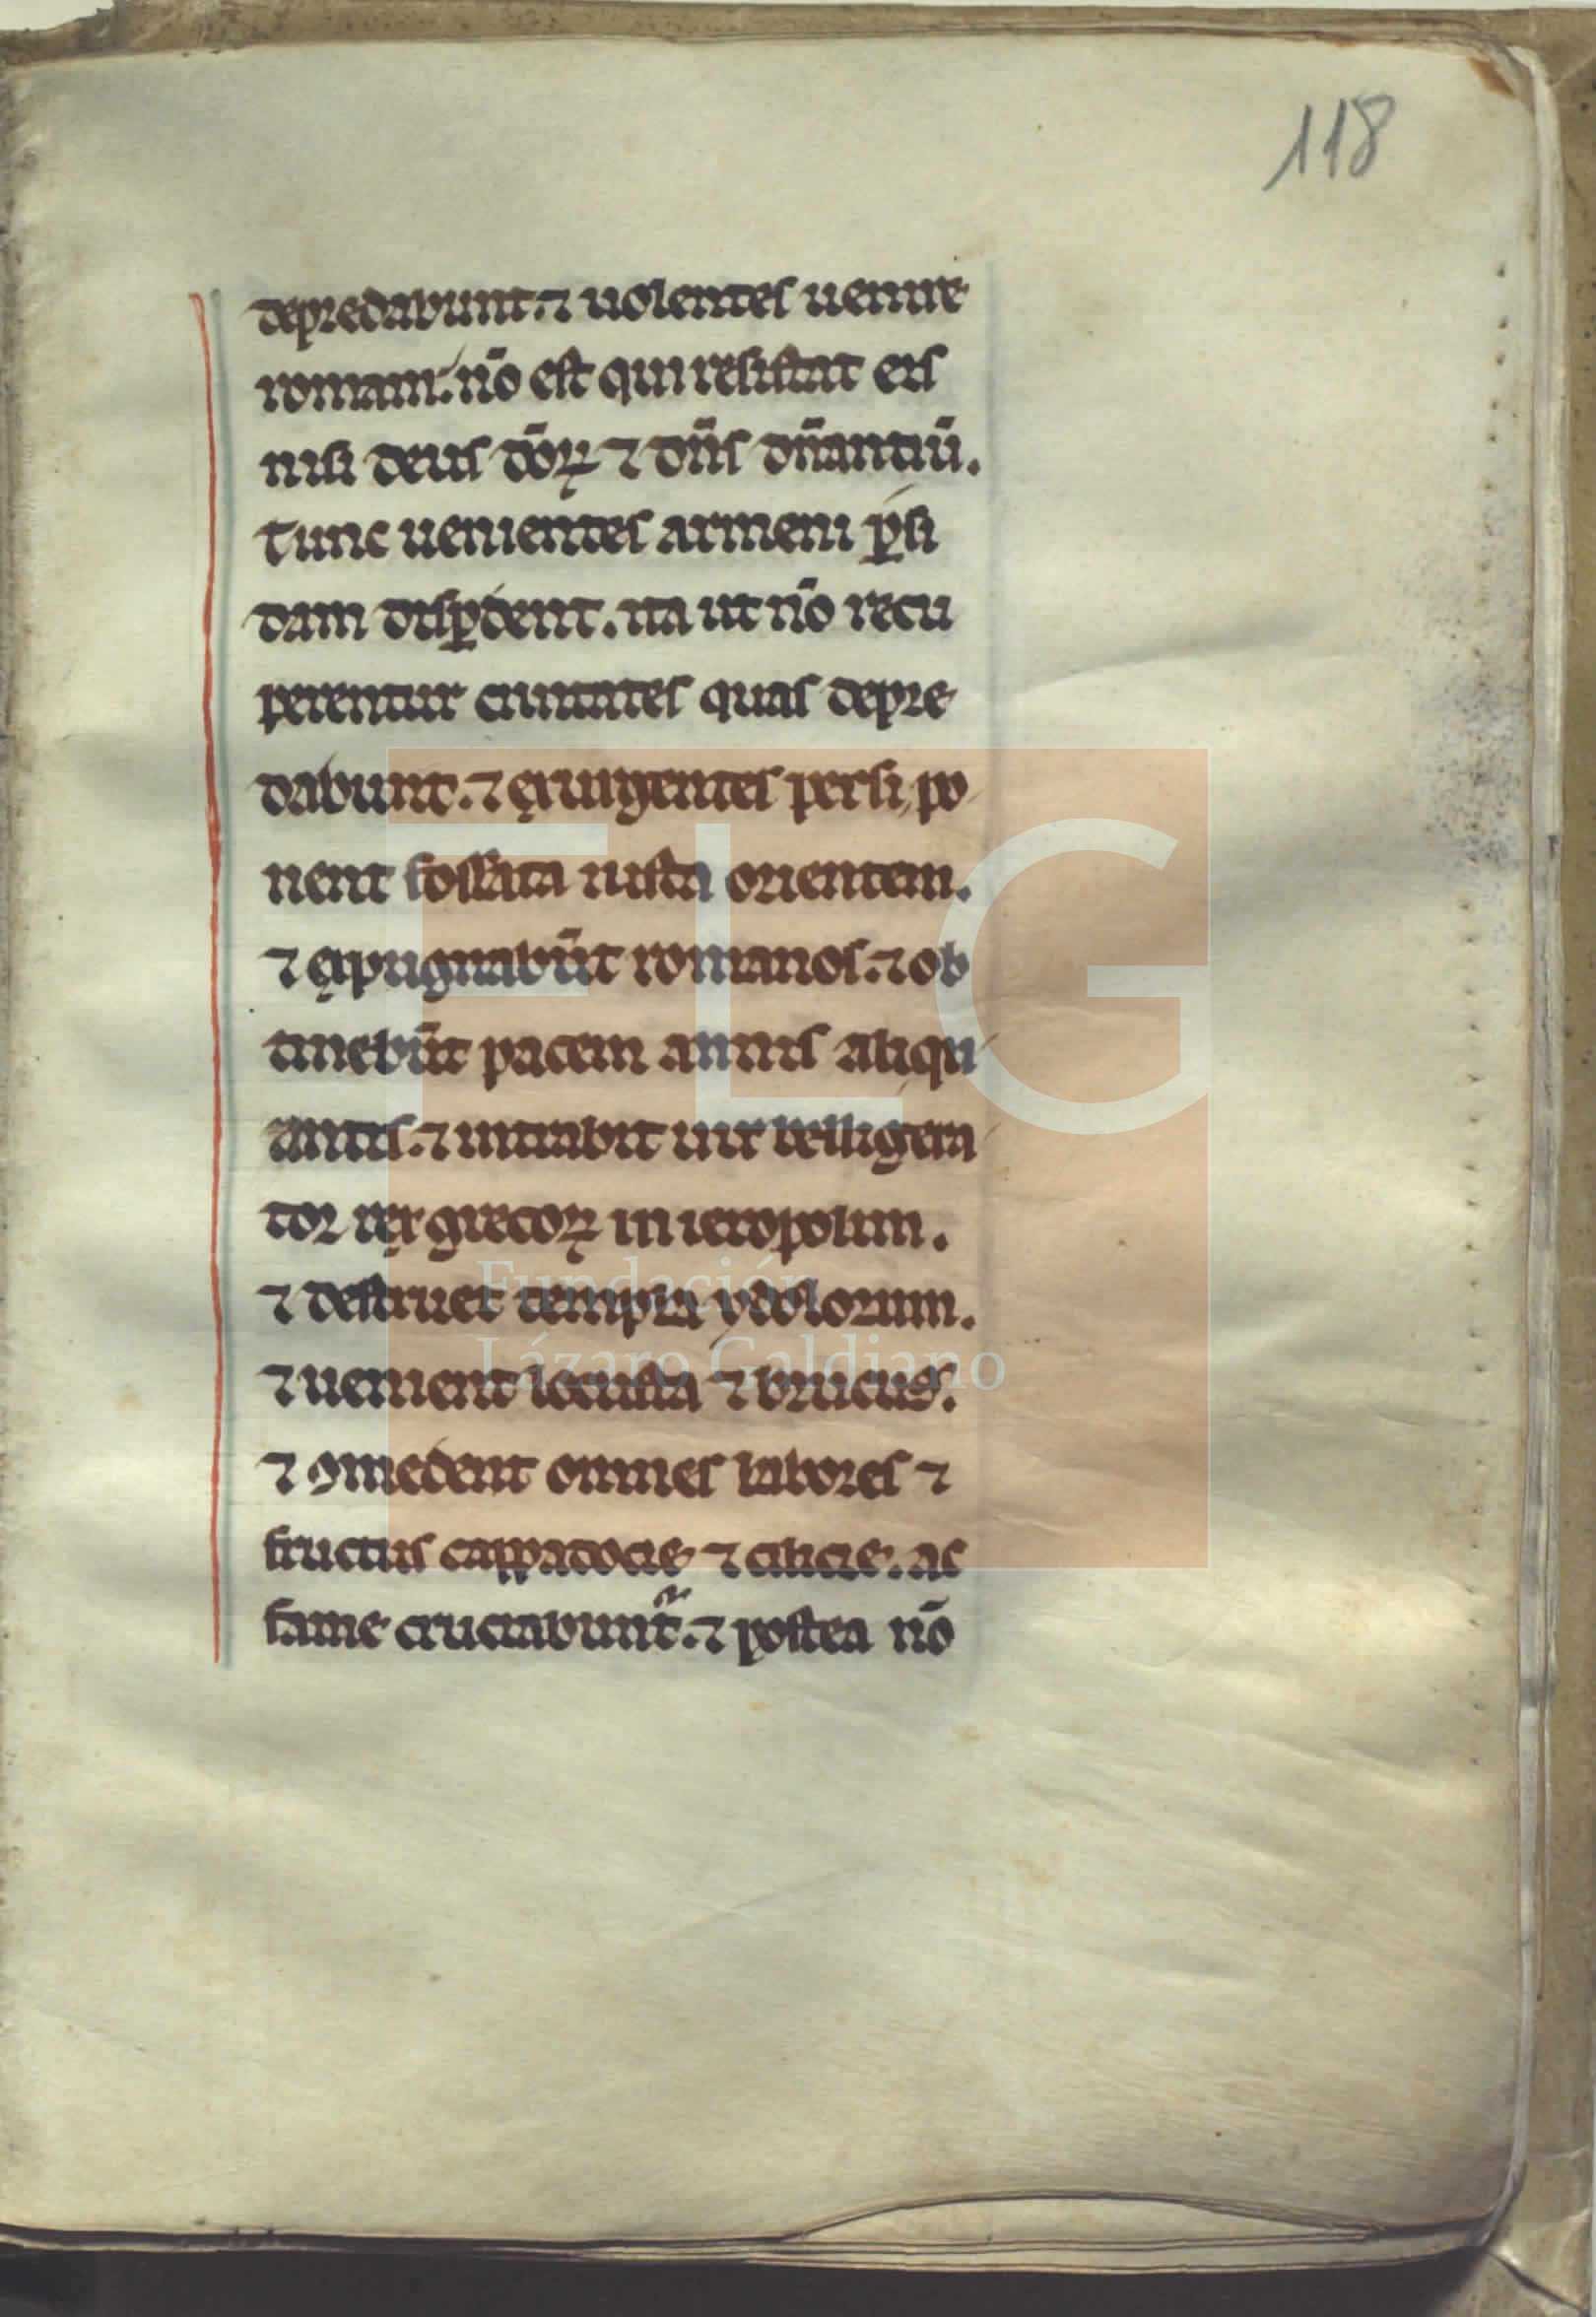 118
depredabunt. ⁊ uolentes uenire
romam. nō est qui resistat eis
nisi deus dōꝝ ⁊ dn̄s dn̄antiū.
Tunc uenientes armeni ꝑsi
dam disꝑdent. ita ut nō recu
perentur ciuitates quas depre
dabunt. ⁊ exurgentes persi, po
nent fossata iusta orientem.
⁊ expugnabūt romanos. ⁊ ob
tinebūt pacem annis aliqu
antis. ⁊ intrabit uir belligera
tor rex grecoꝝ in ieropolim.
⁊ destruet templa ydolorum.
⁊ uenient locusta ⁊ brucus.
⁊ ꝯmedent omnes labores ⁊
fructus cappadocie ⁊ cilicie. ac
fame cruciabunt᷑. ⁊ postea nō
FLG
Fundación
Lázaro Galdiano